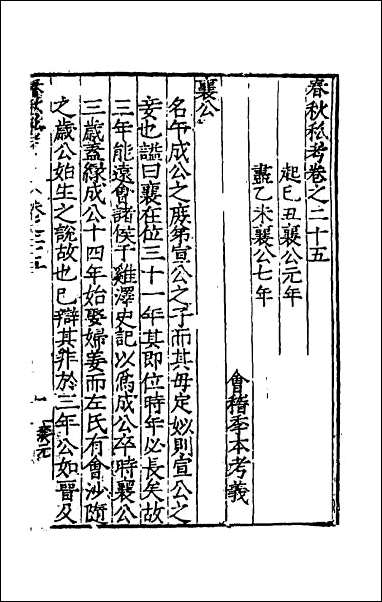 春秋私考卷之二十五
起己丑襄公元年
盡乙未襄公七年
會稽季本考義
襄公
名午成公之庶弟宣公之子而其母定姒則宣公之
妾也諡曰襄在位三十一年其即位時年必長矣故
三年能遠會諸侯于雞澤史記以爲成公卒時襄公
三歲蓋緣成公十四年始娶婦姜而左氏有會沙隨
之歲公始生之說故也已辯其非於三年公如晉及
春秋私考 卷二十五 一 襄元